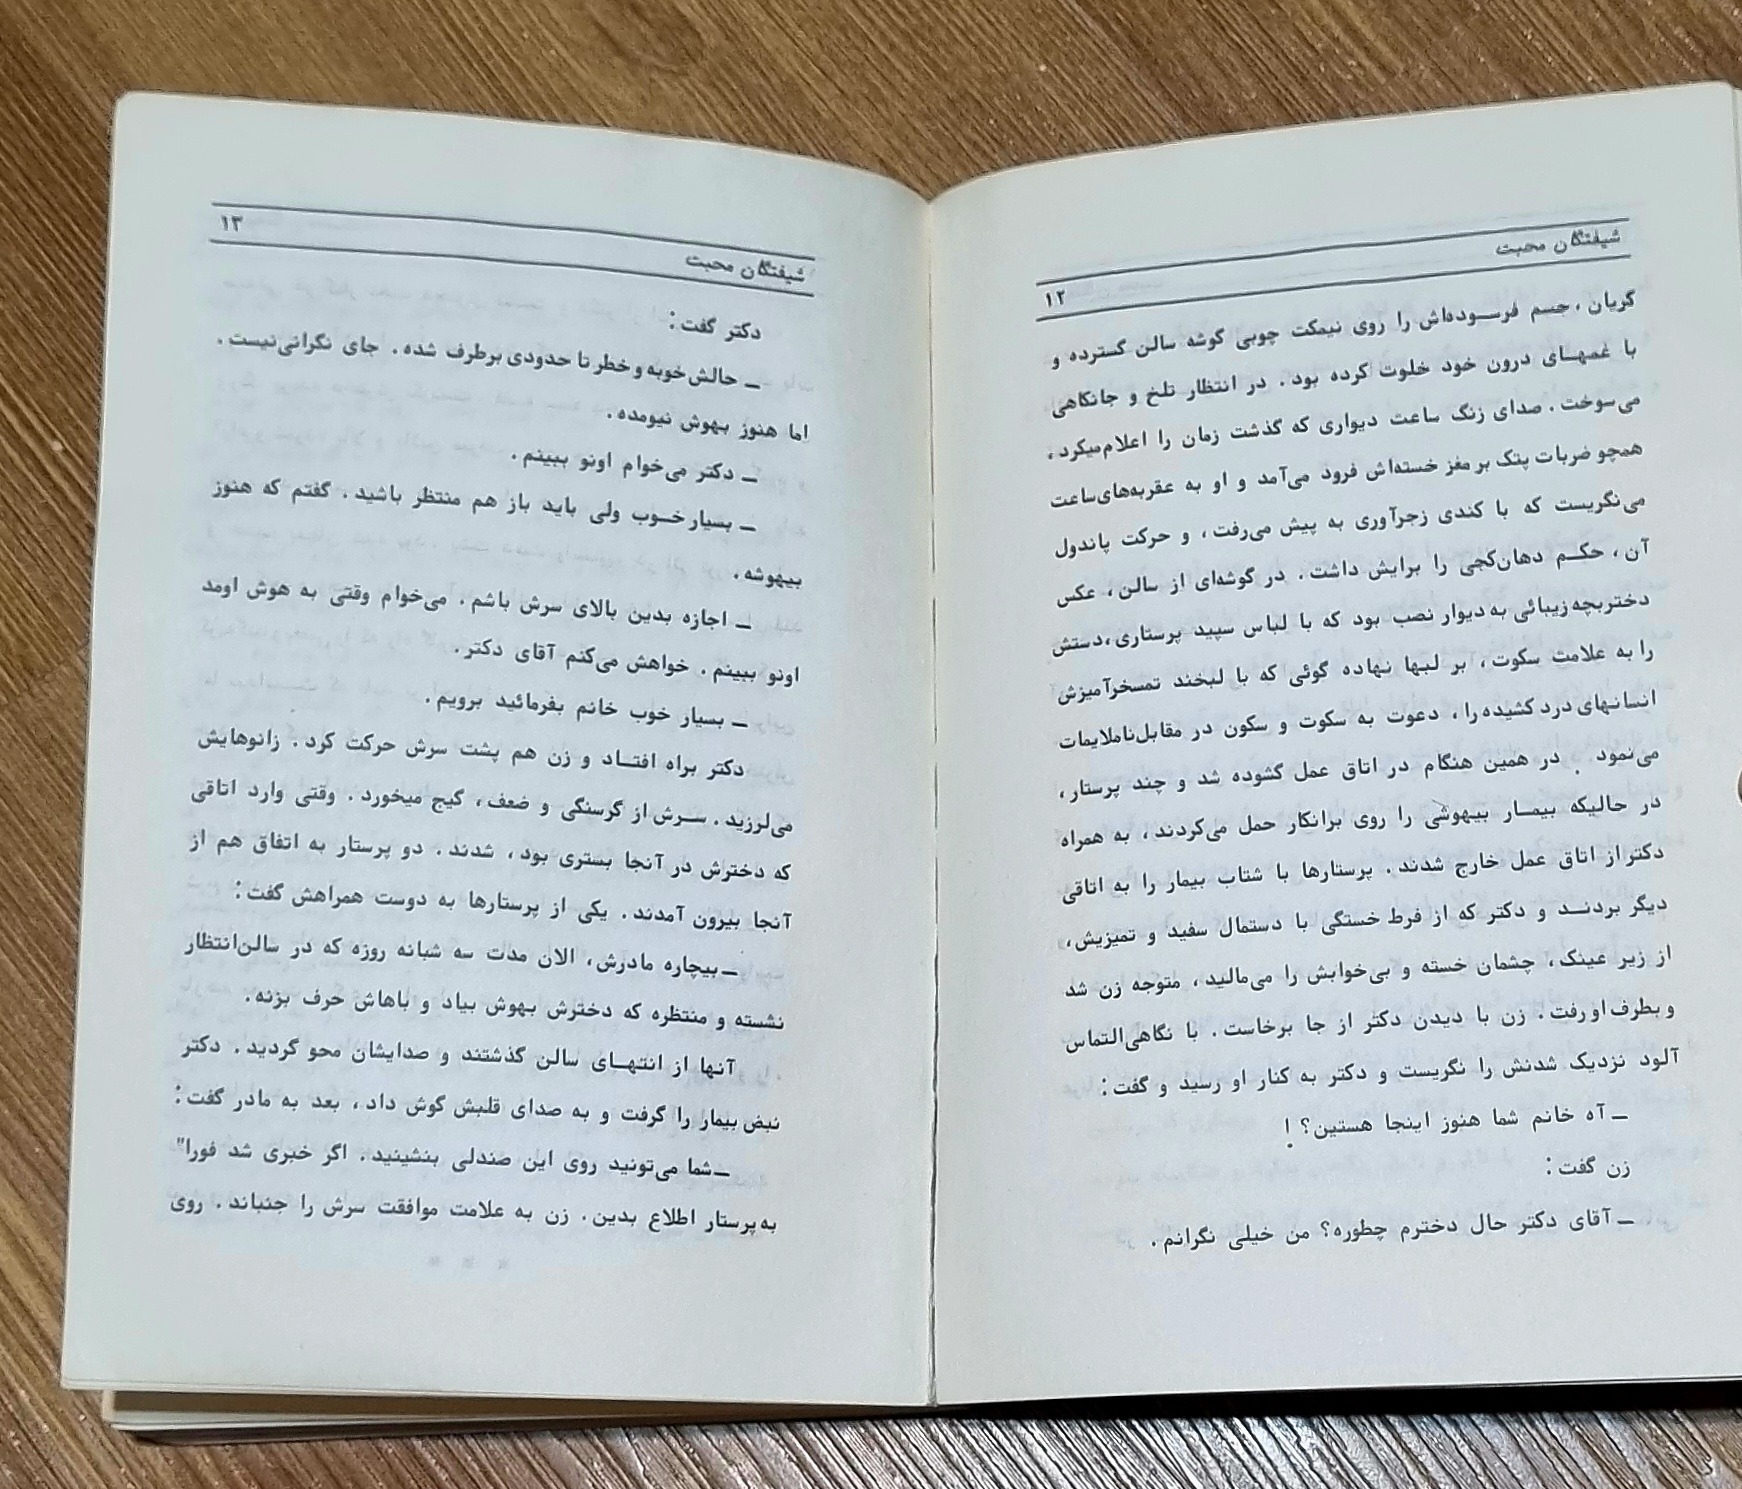 شیفتگان محبت
۱۲
گریان، جسم فرسوده‌اش را روی نیمکت چوبی گوشه سالن گسترده و
با غمهای درون خود خلوت کرده بود. در انتظار تلخ و جانکاهی
می‌سوخت. صدای زنگ ساعت دیواری که گذشت زمان را اعلام‌میکرد،
همچو ضربات پتک بر مغز خسته‌اش فرود می‌آمد و او به عقربه‌های‌ساعت
می‌نگریست که با کندی زجرآوری به پیش می‌رفت، و حرکت پاندول
آن، حکم دهان‌کجی را برایش داشت. در گوشه‌ای از سالن، عکس
دختربچه زیبائی به دیوار نصب بود که با لباس سپید پرستاری، دستش
را به علامت سکوت، بر لبها نهاده گوئی که با لبخند تمسخرآمیزش
انسانهای درد کشیده را، دعوت به سکوت و سکون در مقابل‌ناملایمات
می‌نمود. در همین هنگام در اتاق عمل گشوده شد و چند پرستار،
در حالیکه بیمار بیهوشی را روی برانکار حمل می‌کردند، به همراه
دکتر از اتاق عمل خارج شدند. پرستارها با شتاب بیمار را به اتاقی
دیگر بردند و دکتر که از فرط خستگی با دستمال سفید و تمیزیش،
از زیر عینک، چشمان خسته و بی‌خوابش را می‌مالید، متوجه زن شد
و بطرف او رفت. زن با دیدن دکتر از جا برخاست. با نگاهی‌التماس
آلود نزدیک شدنش را نگریست و دکتر به کنار او رسید و گفت:
ــ آه خانم شما هنوز اینجا هستین؟!
زن گفت:
ــ آقای دکتر حال دخترم چطوره؟ من خیلی نگرانم.
شیفتگان محبت
۱۳
دکتر گفت:
ــ حالش خوبه و خطر تا حدودی برطرف شده. جای نگرانی‌نیست.
اما هنوز بهوش نیومده.
ــ دکتر می‌خوام اونو ببینم.
ــ بسیار خوب ولی باید باز هم منتظر باشید. گفتم که هنوز
بیهوشه.
ــ اجازه بدین بالای سرش باشم. می‌خوام وقتی به هوش اومد
اونو ببینم. خواهش می‌کنم آقای دکتر.
ــ بسیار خوب خانم بفرمائید برویم.
دکتر براه افتاد و زن هم پشت سرش حرکت کرد. زانوهایش
می‌لرزید. سرش از گرسنگی و ضعف، گیج میخورد. وقتی وارد اتاقی
که دخترش در آنجا بستری بود، شدند. دو پرستار به اتفاق هم از
آنجا بیرون آمدند. یکی از پرستارها به دوست همراهش گفت:
ــ بیچاره مادرش، الان مدت سه شبانه روزه که در سالن‌انتظار
نشسته و منتظره که دخترش بهوش بیاد و باهاش حرف بزنه.
آنها از انتهای سالن گذشتند و صدایشان محو گردید. دکتر
نبض بیمار را گرفت و به صدای قلبش گوش داد، بعد به مادر گفت:
ــ شما می‌تونید روی این صندلی بنشینید. اگر خبری شد فورا"
به پرستار اطلاع بدین. زن به علامت موافقت سرش را جنباند. روی